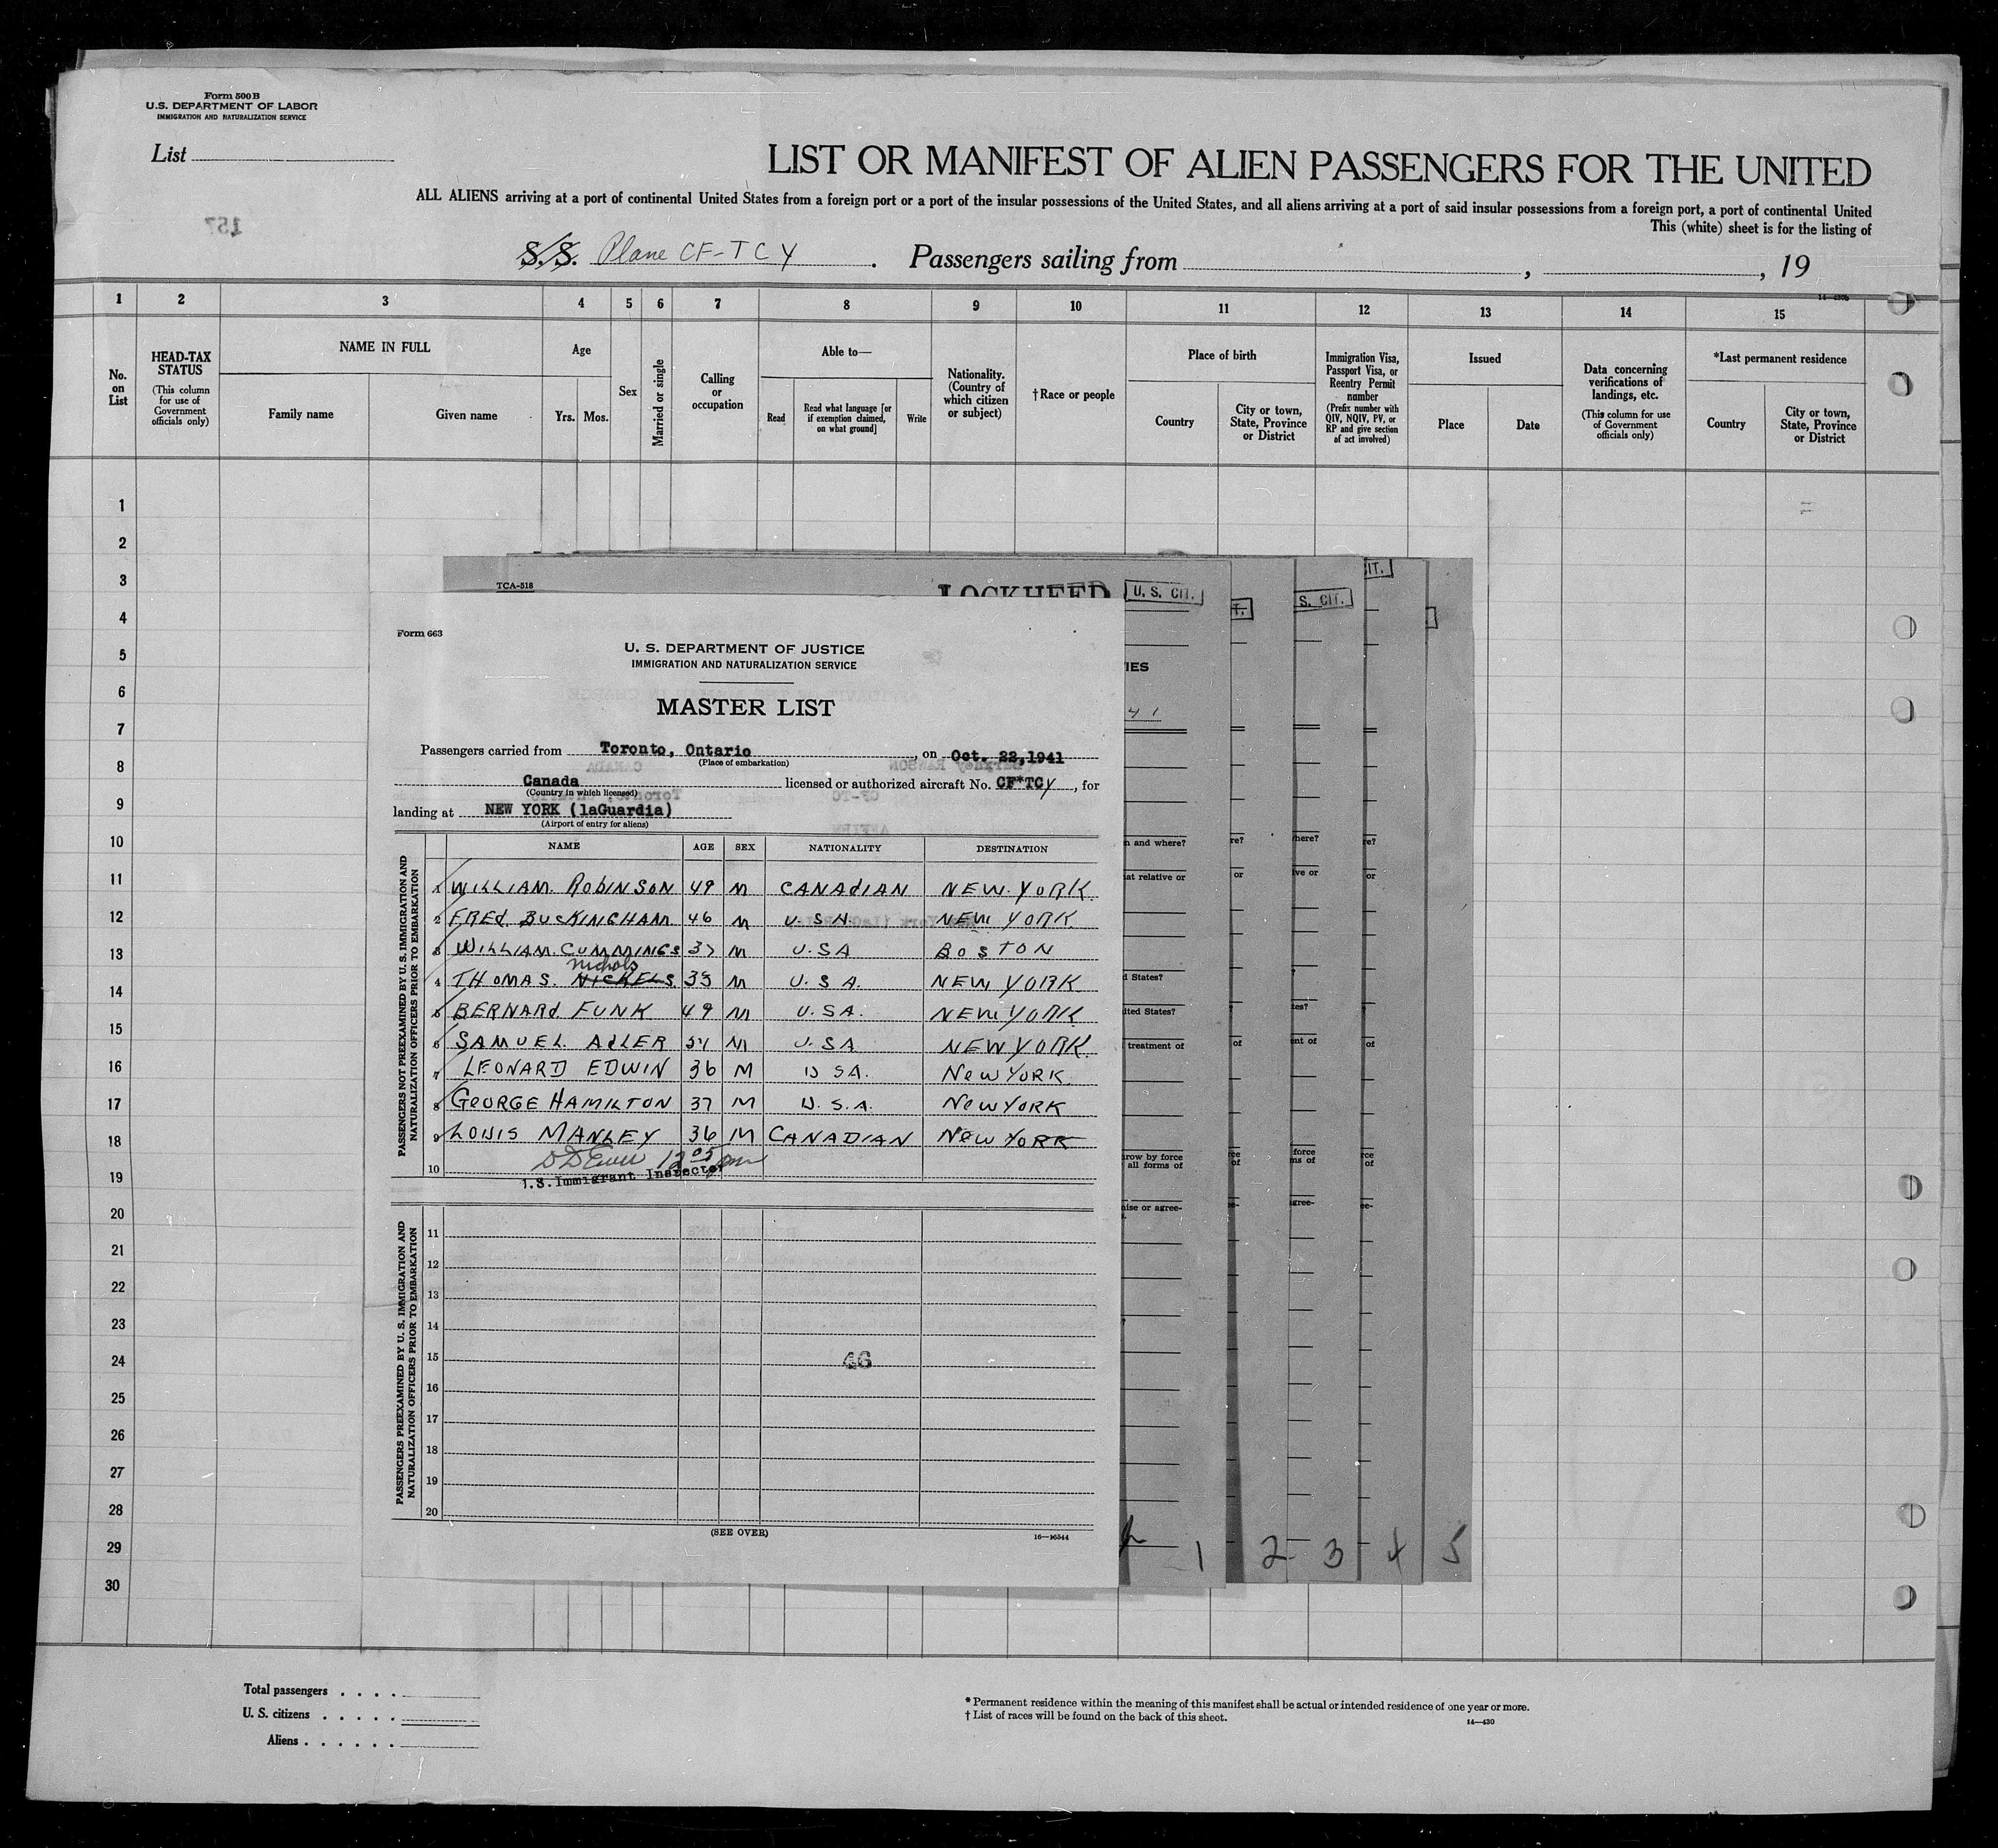 Form 500B
U.S. DEPARTMENT OF LABOR
IMMIGRATION AND NATURALIZATION SERVICE
List
LIST OR MANIFEST OF ALIEN PASSENGERS FOR THE UNITED
ALL ALIENS arriving at a port of continental United States from a foreign port or a port of the insular possessions of the United States, and all aliens arriving at a port of said insular possessions from a foreign port, a port of continental United
This (white) sheet is for the listing of
157
S.S. Plane CF-TCY . Passengers sailing from , , 19
14—430b
1 2 3 4 5 6 7 8 9 10 11 12 13 14 15
No. on List
HEAD-TAX STATUS (This column for use of Government officials only)
NAME IN FULL
Family name Given name
Age
Yrs. Mos.
Sex
Married or single
Calling or occupation
Able to—
Read
Read what language [or if exemption claimed, on what ground]
Write
Nationality. (Country of which citizen or subject)
†Race or people
Place of birth
Country
City or town, State, Province or District
Immigration Visa, Passport Visa, or Reentry Permit number (Prefix number with QIV, NQIV, PV, or RP and give section of act involved)
Issued
Place Date
Data concerning verifications of landings, etc. (This column for use of Government officials only)
*Last permanent residence
Country
City or town, State, Province or District
1
2
3
4
5
6
7
8
9
10
11
12
13
14
15
16
17
18
19
20
21
22
23
24
25
26
27
28
29
30
TCA-518
LOCKHEED
U. S. CIT.
T.
S. CIT.
IT.
Form 663
U. S. DEPARTMENT OF JUSTICE
IMMIGRATION AND NATURALIZATION SERVICE
MASTER LIST
Passengers carried from Toronto, Ontario , on Oct. 22,1941
(Place of embarkation)
Canada licensed or authorized aircraft No. CF*TCY , for
(Country in which licensed)
landing at NEW YORK (laGuardia)
(Airport of entry for aliens)
NAME AGE SEX NATIONALITY DESTINATION
PASSENGERS NOT PREEXAMINED BY U. S. IMMIGRATION AND NATURALIZATION OFFICERS PRIOR TO EMBARKATION
1 WILLIAM. ROBINSON 49 M CANADIAN NEW. YORK.
2 FREd BUCKINGHAM 46 M U.S.A. NEW YORK.
3 WILLIAM. CUMMINGS 37 M U.SA BOSTON
Nichols
4 THOMAS. NICKELS. 33 M U.S A. NEW YORK
5 BERNARd FUNK 49 M U.SA. NEW YORK.
6 SAMUEL AdLER 54 M U.SA NEW YORK.
7 LEONARD EDWIN 36 M U SA. NEW YORK.
8 GEORGE HAMILTON 37 M U.S.A. NEW YORK
9 LOUIS MANLEY 36 M CANADIAN NEW YORK
10
12 05 pm
.S. Immigrant Inspector
PASSENGERS PREEXAMINED BY U. S. IMMIGRATION AND NATURALIZATION OFFICERS PRIOR TO EMBARKATION
11
12
13
14
15
46
16
17
18
19
20
(SEE OVER)
16—16344
IES
41
n and where?
at relative or
d States?
ited States?
treatment of
row by force
all forms of
ise or agree-
re?
or
of
here?
ive or
tes?
ent of
force
ms of
gree-
re?
or
of
rce
of
ee-
1 2 3 4 5
Total passengers . . . .
U. S. citizens . . . . .
Aliens . . . . . .
* Permanent residence within the meaning of this manifest shall be actual or intended residence of one year or more.
† List of races will be found on the back of this sheet.
14—430